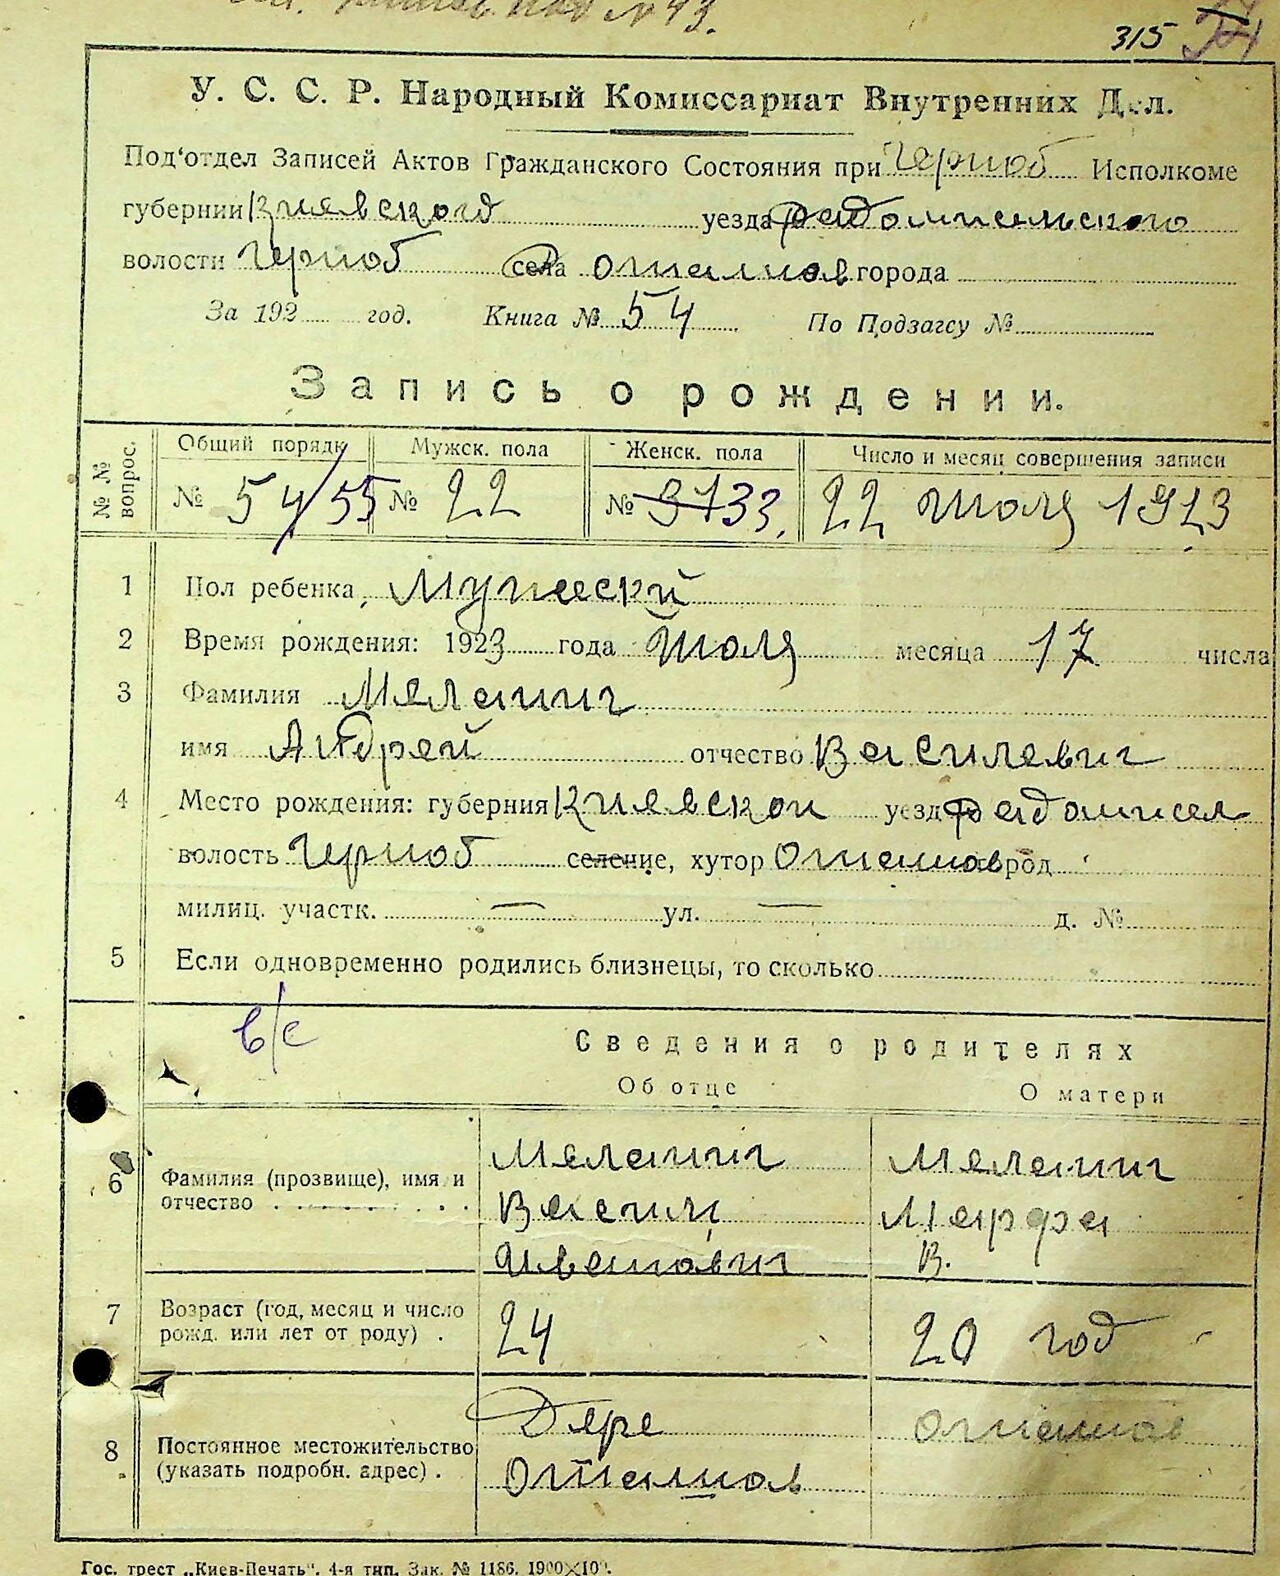 № 43.
315
У. С. С. Р. Народный Комиссариат Внутренних Дел.
Под'отдел Записей Актов Гражданского Состояния при Черноб Исполкоме
губернии Киевской уезда Радомисельского
волости Черноб села города
За 192 год. Книга № 54 По Подзагсу №
Запись о рождении.
№ № вопрос.
Общий порядк Мужск. пола Женск. пола Число и месяц совершения записи
№ 54/55 № 22 № 33. 22 Июля 1923
1 Пол ребенка Мужеской
2 Время рождения: 1923 года Июля месяца 17 числа
3 Фамилия Меланич
имя Андрей отчество Василевич
4 Место рождения: губерния Киевской уезд Радомисел
волость Черноб селение, хутор город
милиц. участк. — ул. — д. №
5 Если одновременно родились близнецы, то сколько
в/с
Сведения о родителях
Об отце О матери
6 Фамилия (прозвище), имя и отчество
Меланич Василь Иванович
Меланич Марфа В.
7 Возраст (год, месяц и число рожд. или лет от роду) . 24 20 год
8 Постоянное местожительство (указать подробн. адрес) .
Гос. трест „Киев-Печать". 4-я тип. Зак. № 1186. 1900×100.